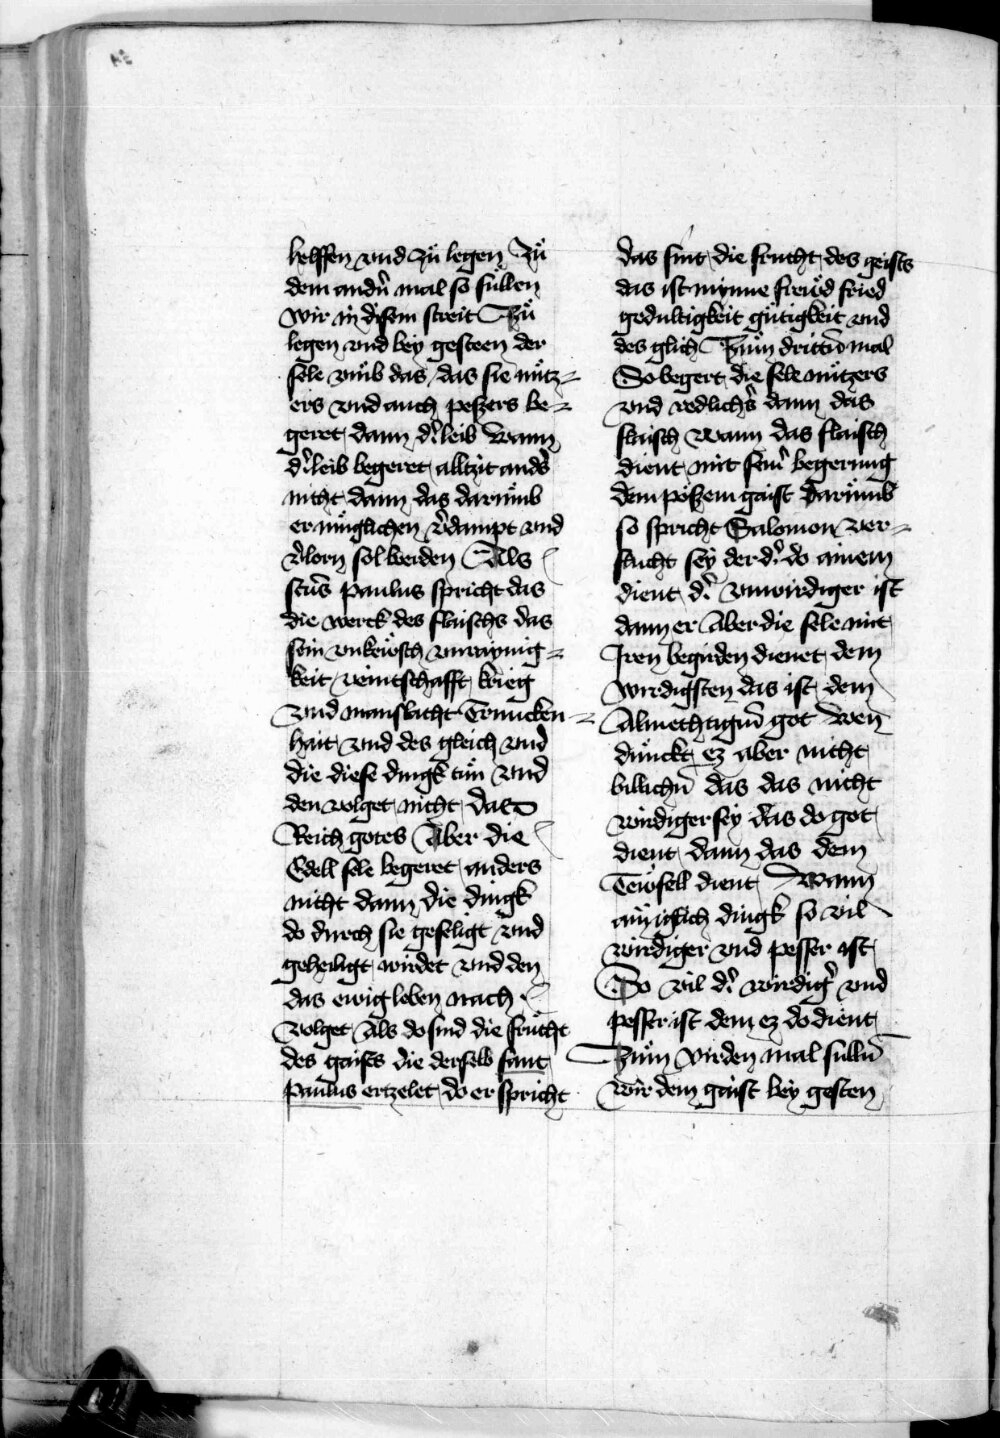 helffen vnd zů legen Zů
dem andn̄ mal so süllen
wir in disem streit Zů
legen vnd bey gesteen der
sele vmb das das sie nütz-
ers vnd auch peszers be-
geret dann d' leib Wann
d' leib begeret alltzit and's
nicht dann das darumb
er müglichen v'dampt vnd
v'lorn sol werden Als
sctūs paulus spricht das
die werck des flaischs das
sein vnkeüsch vnraynig-
keit veintschafft krieg
vnd manslacht Truncken-
hait vnd des gleich vnd
die diese dingk tun vnd
den volget nicht das
Reich gotes Aber die
Edell sele begeret anders
nicht dann die dingk
do durch sie geseligt vnd
geheiligt wirdet vnd den
das ewig leben nach
volget Als do sind die frücht
des gaists die derselb sant
paulus ertzelet do er spricht
das sint die frucht des geists
das ist mynne freüd fried
gedultigkeit gütigkeit vnd
des glich Zum drittn̄ mal
So begert die sele nützers
vnd redlich's dann das
flaisch Wann das flaisch
dient mit sein' begerung
dem pöszem gaist Darumb
so spricht Salomon ver-
flucht sey der d' do ainem
dient d' vnwirdiger ist
dann er Aber die sele mit
Iren begirden dienet dem
wirdigsten das ist dem
Almechtign̄ got Wen
dünckt ez aber nicht
billichn̄ das das nicht
wirdiger sey das do got
dient dann das dem
Teüfell dient Wann
ain iglich dingk so vil
wirdiger vnd pesser ist
So vil d' wirdig' vnd
pesser ist dem ez do dient
Zum virden mal sulln̄
wir dem gaist bey gesten